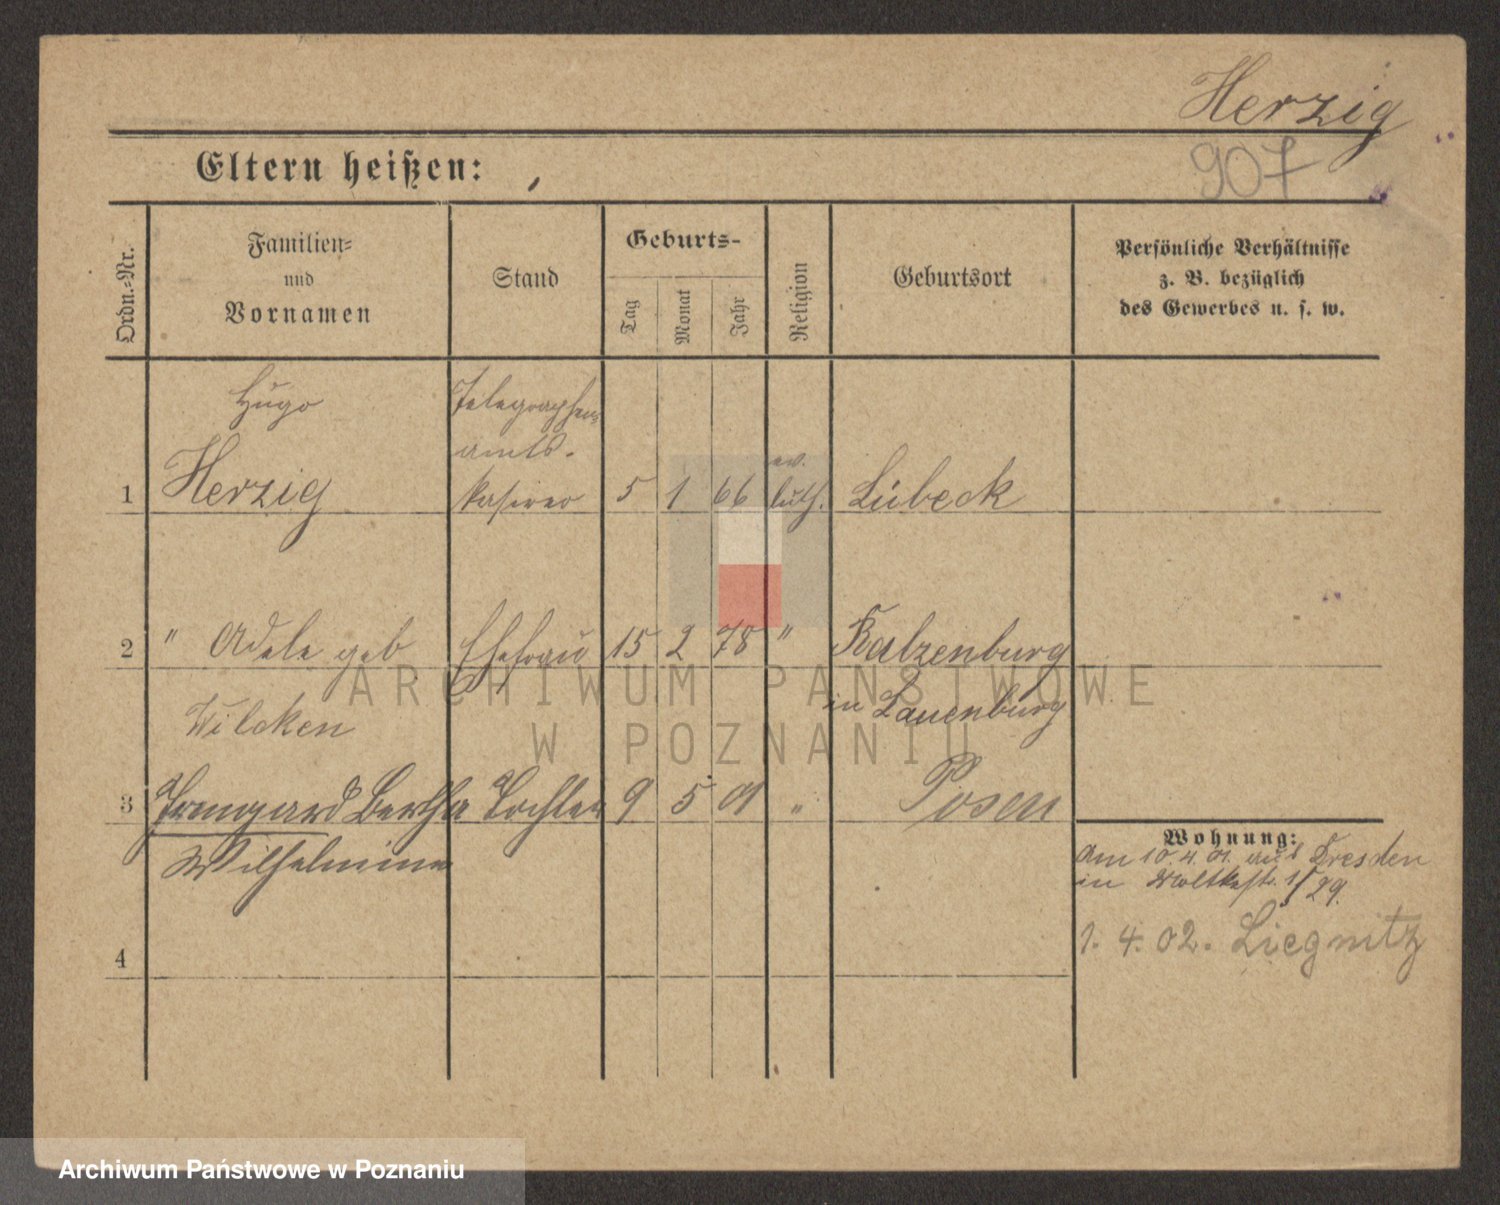 Herzig
907
Eltern heißen:
Ordn.-Nr.
Familien-
und
Vornamen
Stand
Geburts-
Tag
Monat
Jahr
Religion
Geburtsort
Persönliche Verhältnisse
z. B. bezüglich
des Gewerbes u. s. w.
Hugo
Telegraphen-
amts-
ev.
1 Herzig kasirer 5 1 66 luth. Lübeck
2 " Adele geb Ehefrau 15 2 78 " Ratzenburg
Wilcken in Lauenburg
3 Irmgard Bertha Tochter 9 5 01 " Posen
Wilhelmine
4
Wohnung:
Am 10.4.01. aus Dresden
in Moltkestr. 1/29.
1. 4. 02. Liegnitz
ARCHIWUM PAŃSTWOWE
W POZNANIU
Archiwum Państwowe w Poznaniu